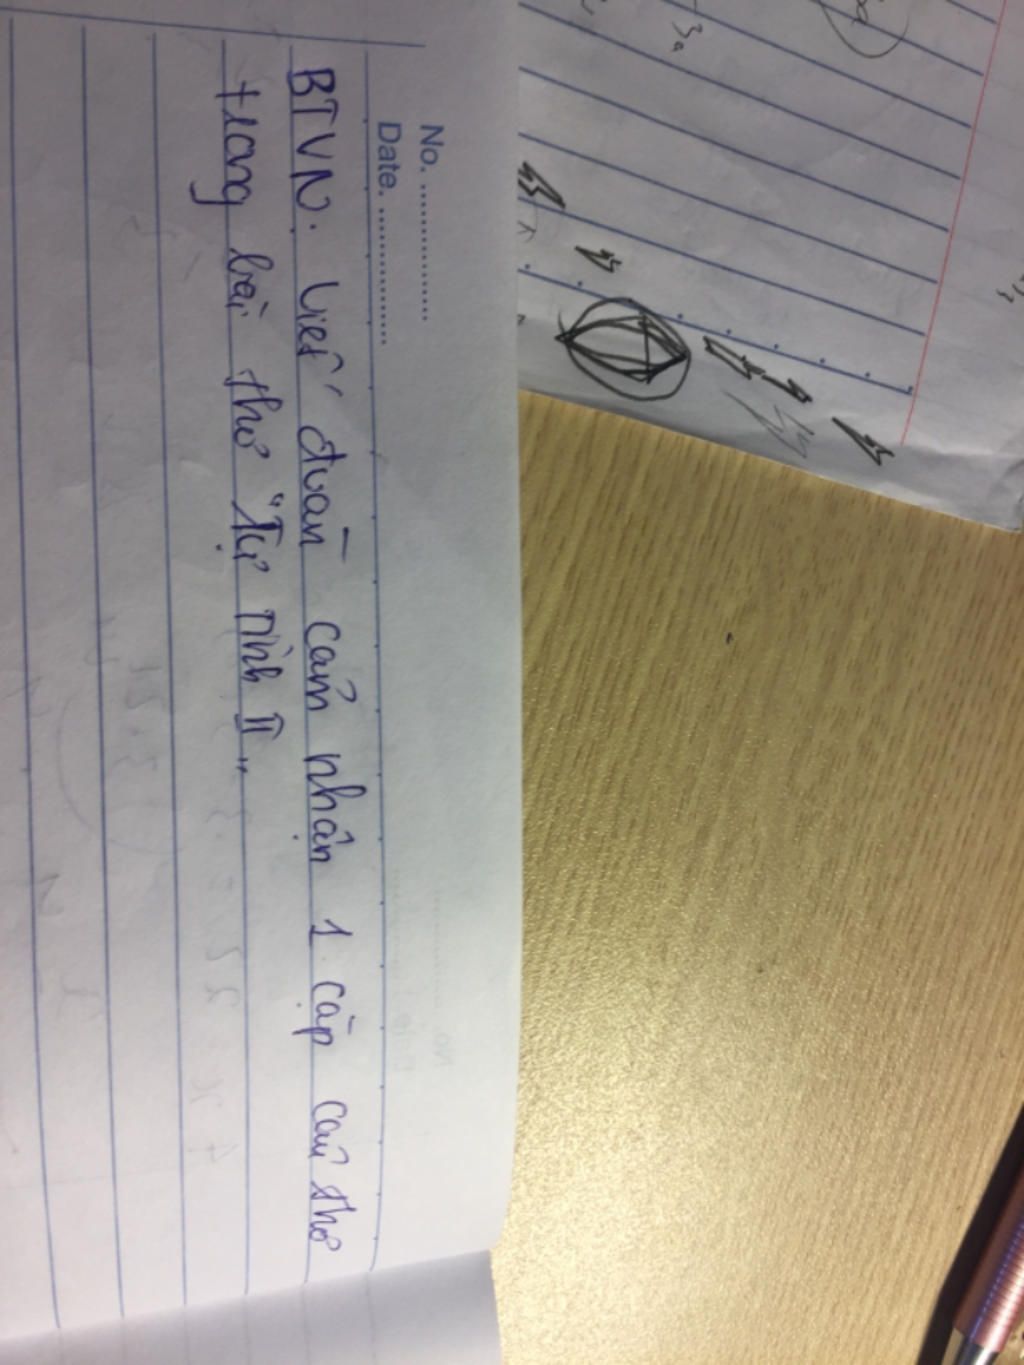 No. ...............
Date. ...............
BTVN. Viết đoạn cảm nhận 1 cặp câu thơ
trong bài thơ "Tự tình II"